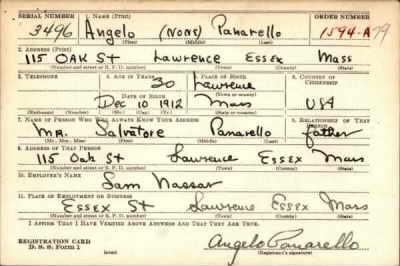 SERIAL NUMBER 1. NAME (Print) ORDER NUMBER
3496 Angelo (NONE) Panarello 1594-A
(First) (Middle) (Last)
2. ADDRESS (Print)
115 OAK St Lawrence Essex Mass
(Number and street or R. F. D. number) (Town) (County) (State)
3. TELEPHONE 4. AGE IN YEARS 5. PLACE OF BIRTH 6. COUNTRY OF CITIZENSHIP
30 Lawrence
DATE OF BIRTH (Town or county)
Dec 10 1912 Mass USA
(Exchange) (Number) (Mo.) (Day) (Yr.) (State or country)
7. NAME OF PERSON WHO WILL ALWAYS KNOW YOUR ADDRESS 8. RELATIONSHIP OF THAT PERSON
Mr. Salvatore Panarello father
(Mr., Mrs., Miss) (First) (Middle) (Last)
9. ADDRESS OF THAT PERSON
115 Oak St Lawrence Essex Mass
(Number and street or R. F. D. number) (Town) (County) (State)
10. EMPLOYER'S NAME
Sam Nassar
11. PLACE OF EMPLOYMENT OR BUSINESS
Essex St Lawrence Essex Mass
(Number and street or R. F. D. number) (Town) (County) (State)
I AFFIRM THAT I HAVE VERIFIED ABOVE ANSWERS AND THAT THEY ARE TRUE.
REGISTRATION CARD
D. S. S. Form 1 Angelo Panarello
(Registrant's signature)